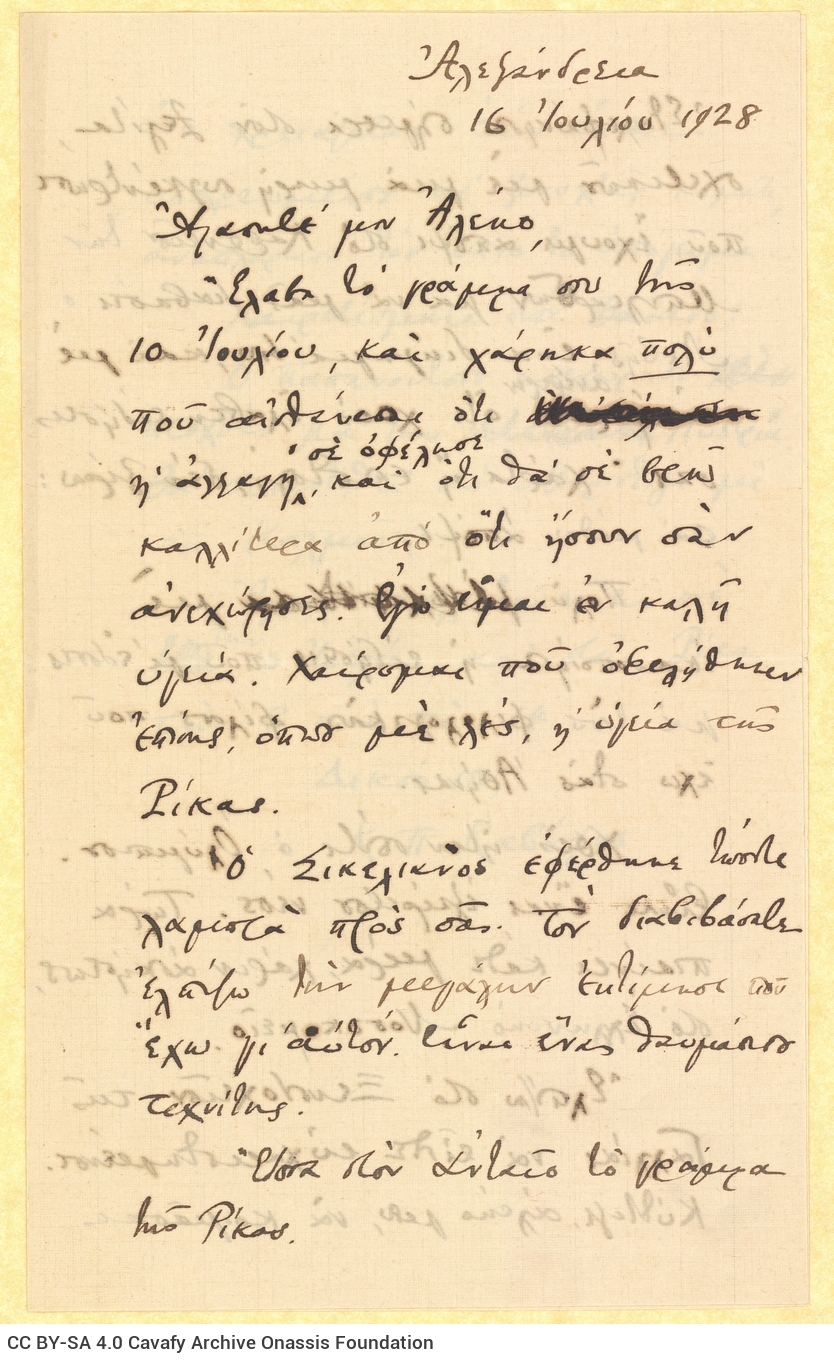 Ἀλεξάνδρεια
16 Ἰουλίου 1928
Ἀγαπητέ μου Ἀλέκο,
Ἔλαβα τὸ γράμμα σου τῆς
10 Ἰουλίου, καὶ χάρηκα πολὺ
ποῦ αἰσθάνεσαι ὅτι
σὲ ὀφέλησε
ἡ ἀλλαγὴ, καὶ ὅτι θὰ σὲ βρῶ
καλλίτερα ἀπὸ ὅτι ἤσουν σὰν
ἀνεχώρησες. Ἐγὼ εἶμαι ἐν καλῇ
ὑγείᾳ. Χαίρομαι ποῦ ὀφελήθηκεν
ἐπίσης, ὅπως μὲ λές, ἡ ὑγεία τῆς
Ρίκας.
Ὁ Σικελιανὸς ἐφέρθηκε
πρὸς σᾶς. Τὸν διαβιβάσατε
ἐλπίζω τὴν μεγάλην ἐκτίμησι ποῦ
ἔχω γι' αὐτόν. Εἶναι ἕνας θαυμάσιος
τεχνίτης.
τὸ γράμμα
τῆς Ρίκας.
CC BY-SA 4.0 Cavafy Archive Onassis Foundation